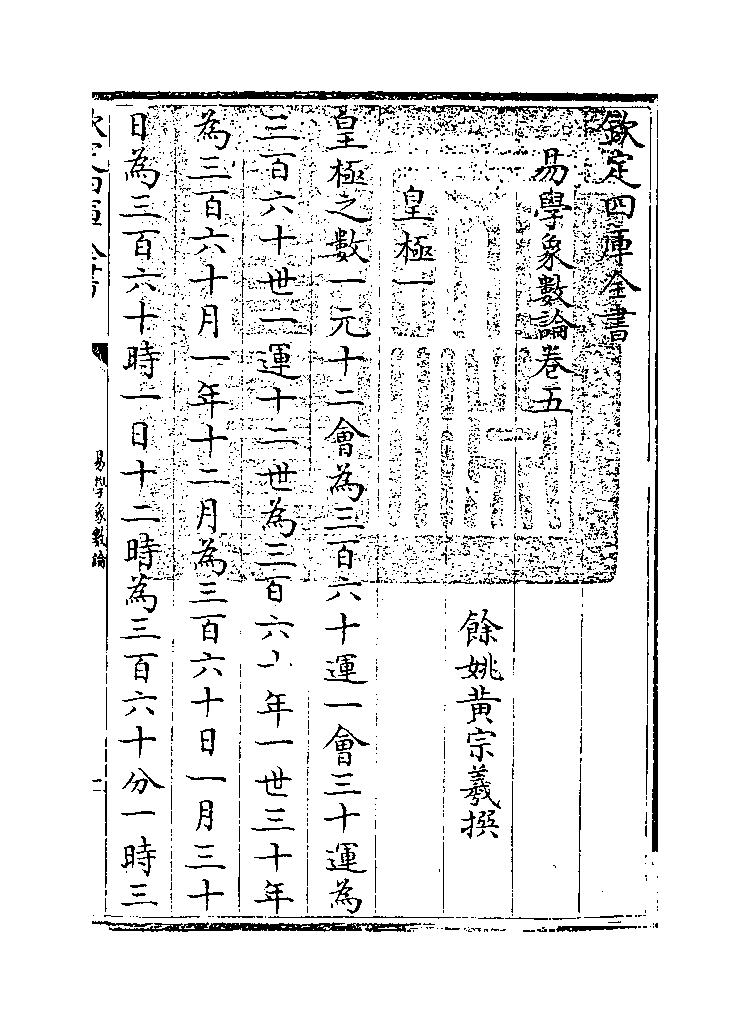 欽定四庫全書
易學象數論卷五
餘姚黃宗羲撰
皇極一
皇極之數一元十二會為三百六十運一會三十運為
三百六十世一運十二世為三百六十年一世三十年
為三百六十月一年十二月為三百六十日一月三十
日為三百六十時一日十二時為三百六十分一時三
欽定四庫全書
易學象數論